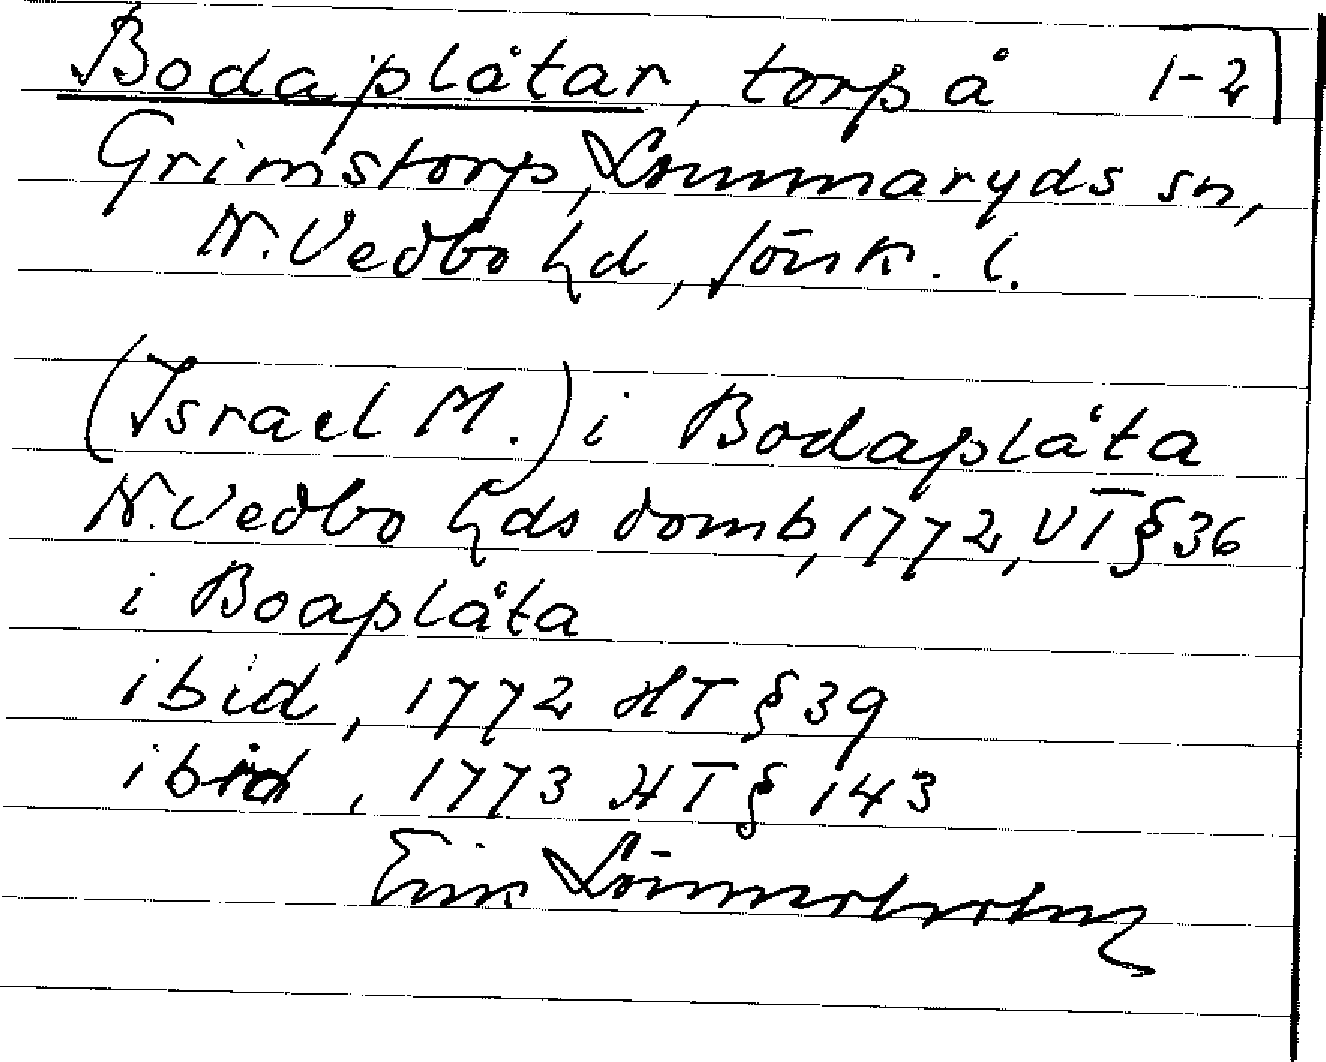 Bodaplåtar, torp å 1-2
Grimstorp, Lommaryds sn,
N. Vedbo hd, Jönk. l.
(Israel M.) i Bodaplåta
N. Vedbo hds domb, 1772, VT § 36
i Boaplåta
ibid, 1772 HT § 39
ibid, 1773 HT § 143
Erik